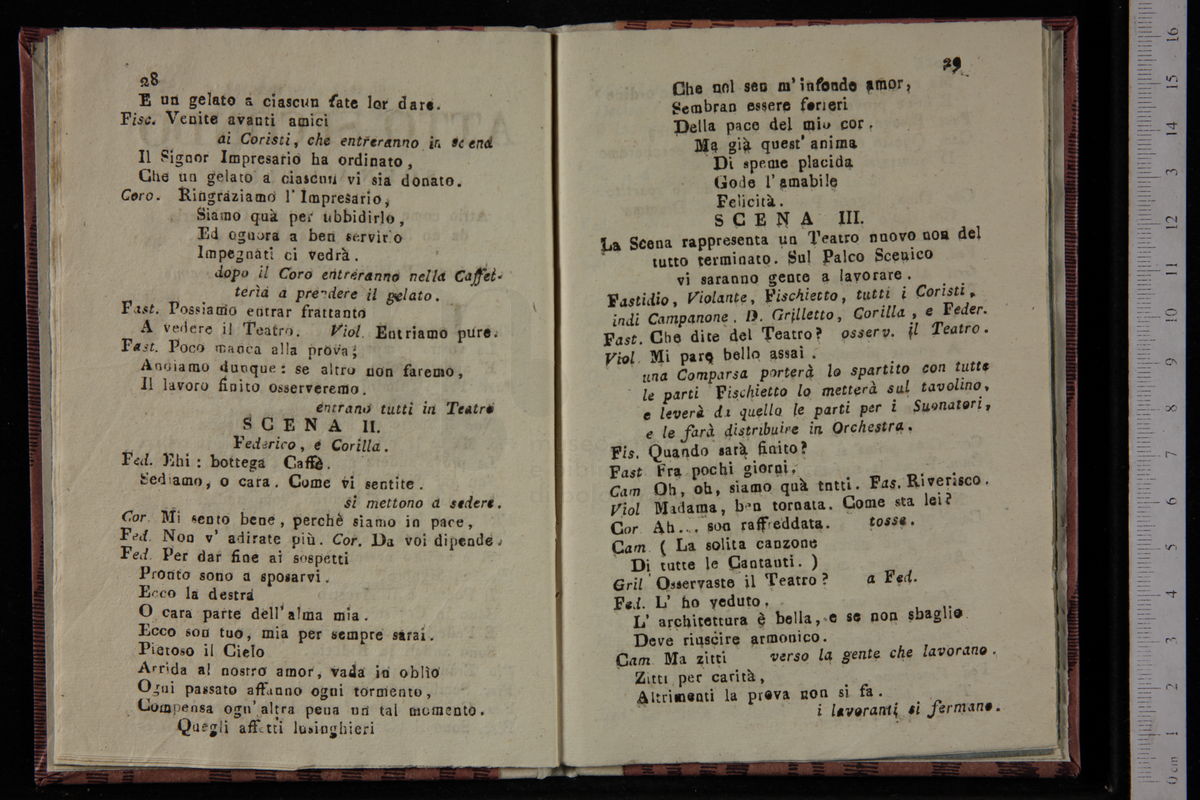 28
E un gelato a ciascun fate lor dare.
Fisc. Venite avanti amici
ai Coristi, che entreranno in scena
Il Signor Impresario ha ordinato,
Che un gelato a ciascun vi sia donato.
Coro. Ringraziamo l'Impresario,
Siamo quà per ubbidirlo,
Ed ognora a ben servirlo
Impegnati ci vedrà.
dopo il Coro entreranno nella Caffet-
teria a prendere il gelato.
Fast. Possiamo entrar frattanto
A vedere il Teatro. Viol. Entriamo pure.
Fast. Poco manca alla prova;
Andiamo dunque: se altro non faremo,
Il lavoro finito osserveremo.
entrano tutti in Teatro
SCENA II.
Federico, e Corilla.
Fed. Ehi: bottega Caffè.
Sediamo, o cara. Come vi sentite.
si mettono a sedere.
Cor. Mi sento bene, perchè siamo in pace,
Fed. Non v' adirate più. Cor. Da voi dipende.
Fed. Per dar fine ai sospetti
Pronto sono a sposarvi.
Ecco la destra
O cara parte dell'alma mia.
Ecco son tuo, mia per sempre sarai.
Pietoso il Cielo
Arrida al nostro amor, vada in oblìo
Ogni passato affanno ogni tormento,
Compensa ogn'altra pena un tal momento.
Quegli affetti lusinghieri
29
Che nel sen m'infonde amor,
Sembran essere forieri
Della pace del mio cor.
Ma già quest'anima
Di speme placida
Gode l'amabile
Felicità.
SCENA III.
La Scena rappresenta un Teatro nuovo non del
tutto terminato. Sul Palco Scenico
vi saranno gente a lavorare.
Fastidio, Violante, Fischietto, tutti i Coristi,
indi Campanone. D. Grilletto, Corilla, e Feder.
Fast. Che dite del Teatro? osserv. il Teatro.
Viol. Mi pare bello assai.
una Comparsa porterà lo spartito con tutte
le parti Fischietto lo metterà sul tavolino,
e leverà da quello le parti per i Suonatori,
e le farà distribuire in Orchestra.
Fis. Quando sarà finito?
Fast Fra pochi giorni.
Cam Oh, oh, siamo quà tntti. Fas. Riverisco.
Viol Madama, ben tornata. Come sta lei?
Cor Ah... son raffreddata. tosse.
Cam. ( La solita canzone
Di tutte le Cantanti. )
Gril Osservaste il Teatro? a Fed.
Fed. L' ho veduto,
L' architettura è bella, e se non sbaglio
Deve riuscire armonico.
Cam Ma zitti verso la gente che lavorano.
Zitti per carità,
Altrimenti la prova non si fa.
i lavoranti si fermano.